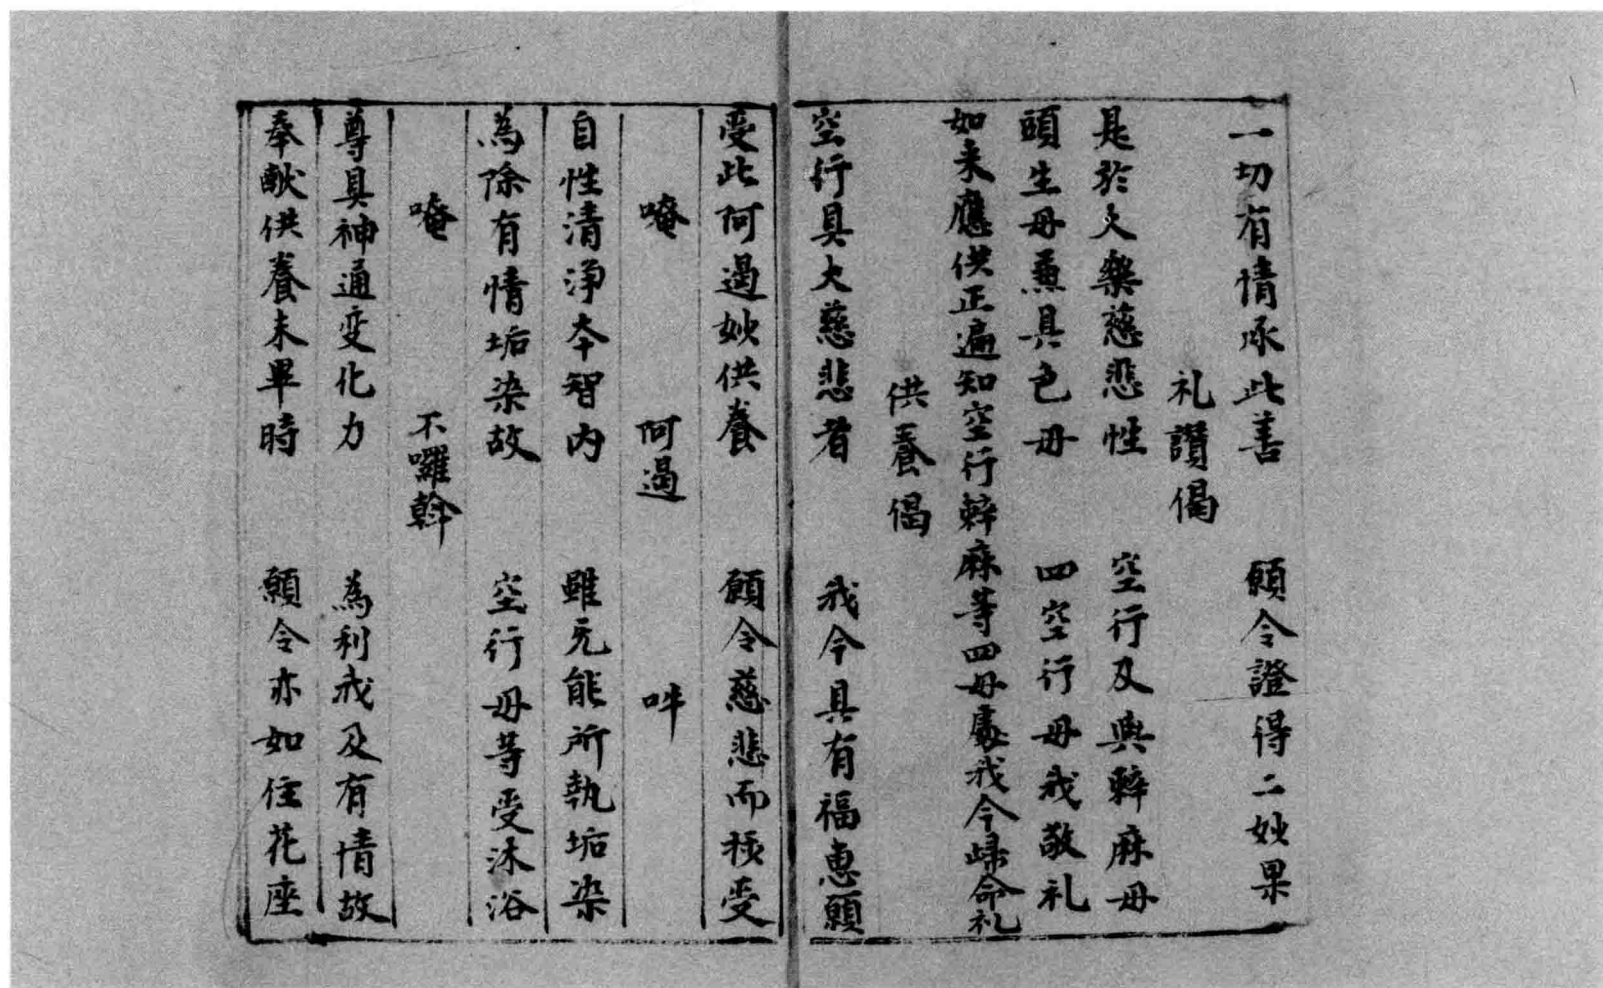 一切有情承此善　願令證得二妙果
礼讃偈
是於大樂慈悲性　空行及與辢麻毋
頭生毋𠔥具色毋　四空行毋我敬礼
如来應供正遍知空行辢麻等四毋處我今歸命礼
供養偈
空行具大慈悲者　我今具有福惠願
受此阿遏妙供養　願令慈悲而移受
唵　阿遏　吽
自性清淨本智内　雖无能所執垢染
為除有情垢染故　空行毋等受沐浴
唵　不囉幹
尊具神通变化力　為利我及有情故
奉献供養未畢時　願令亦如住花座